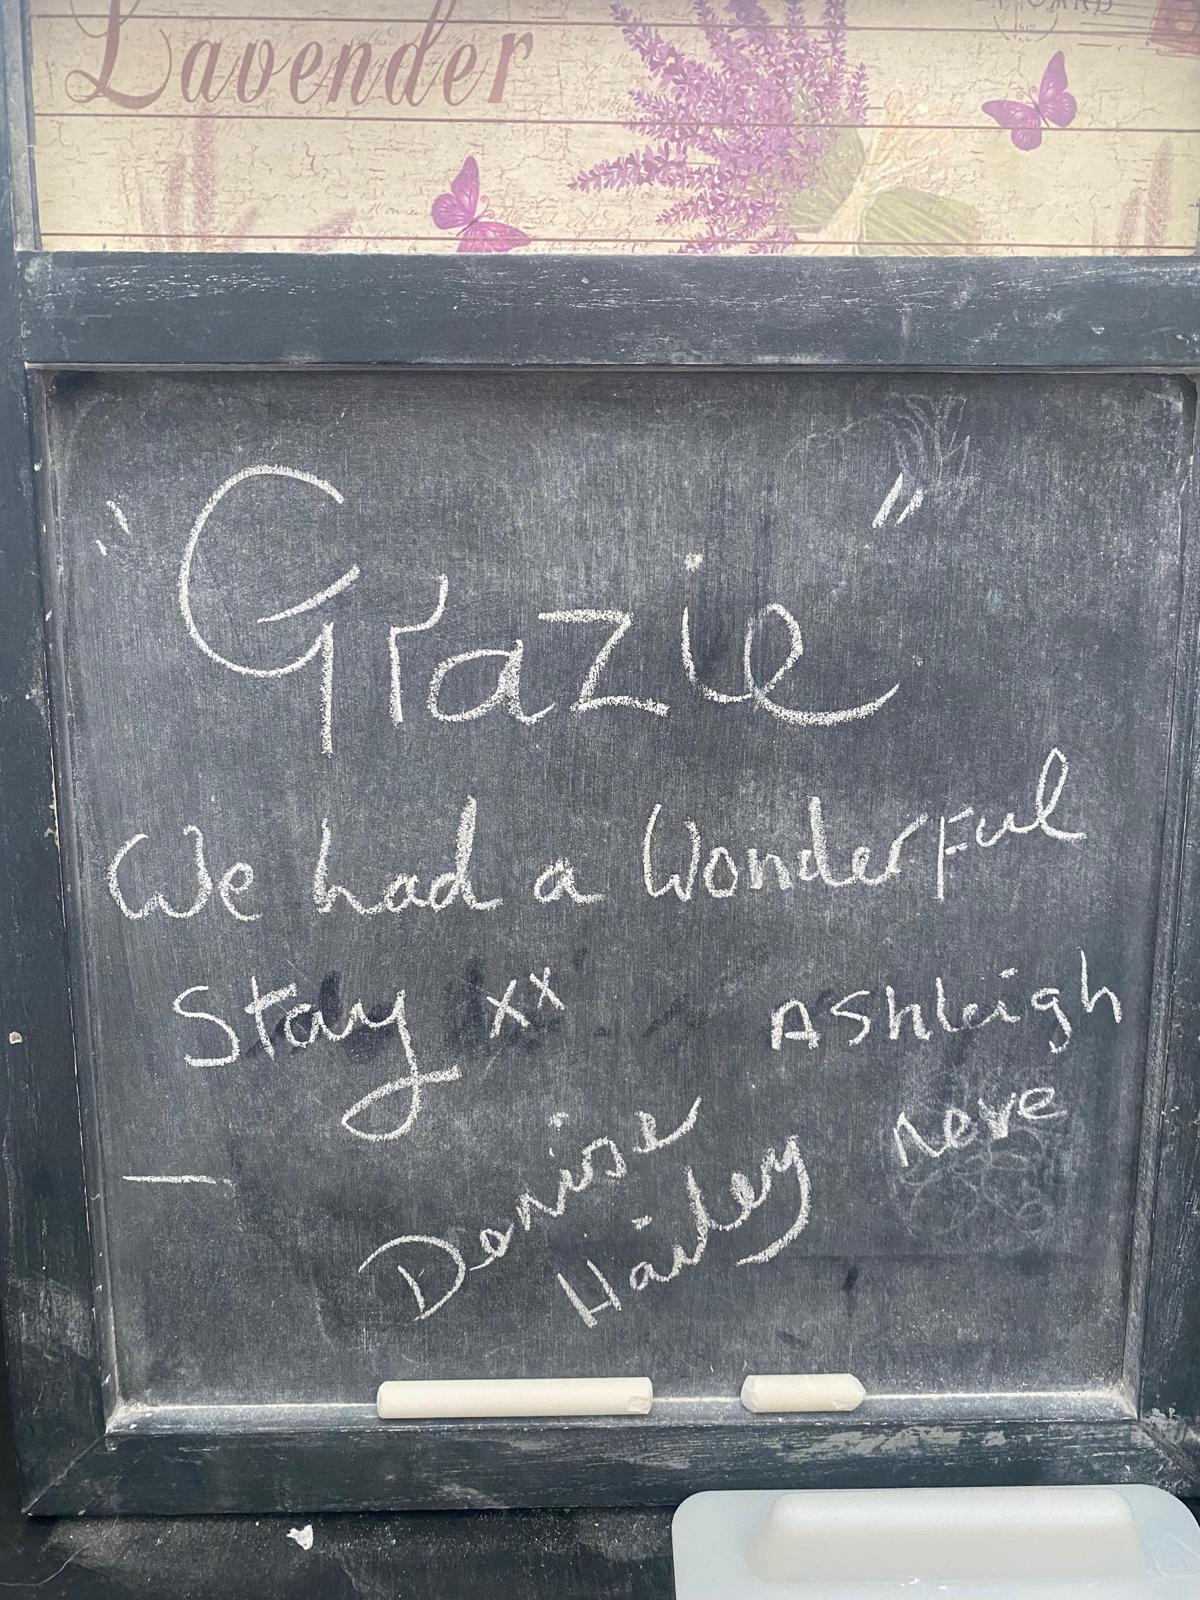 Lavender
"Grazie"
We had a Wonderful
Stay xx
Ashleigh
Neve
Denise
Hailey